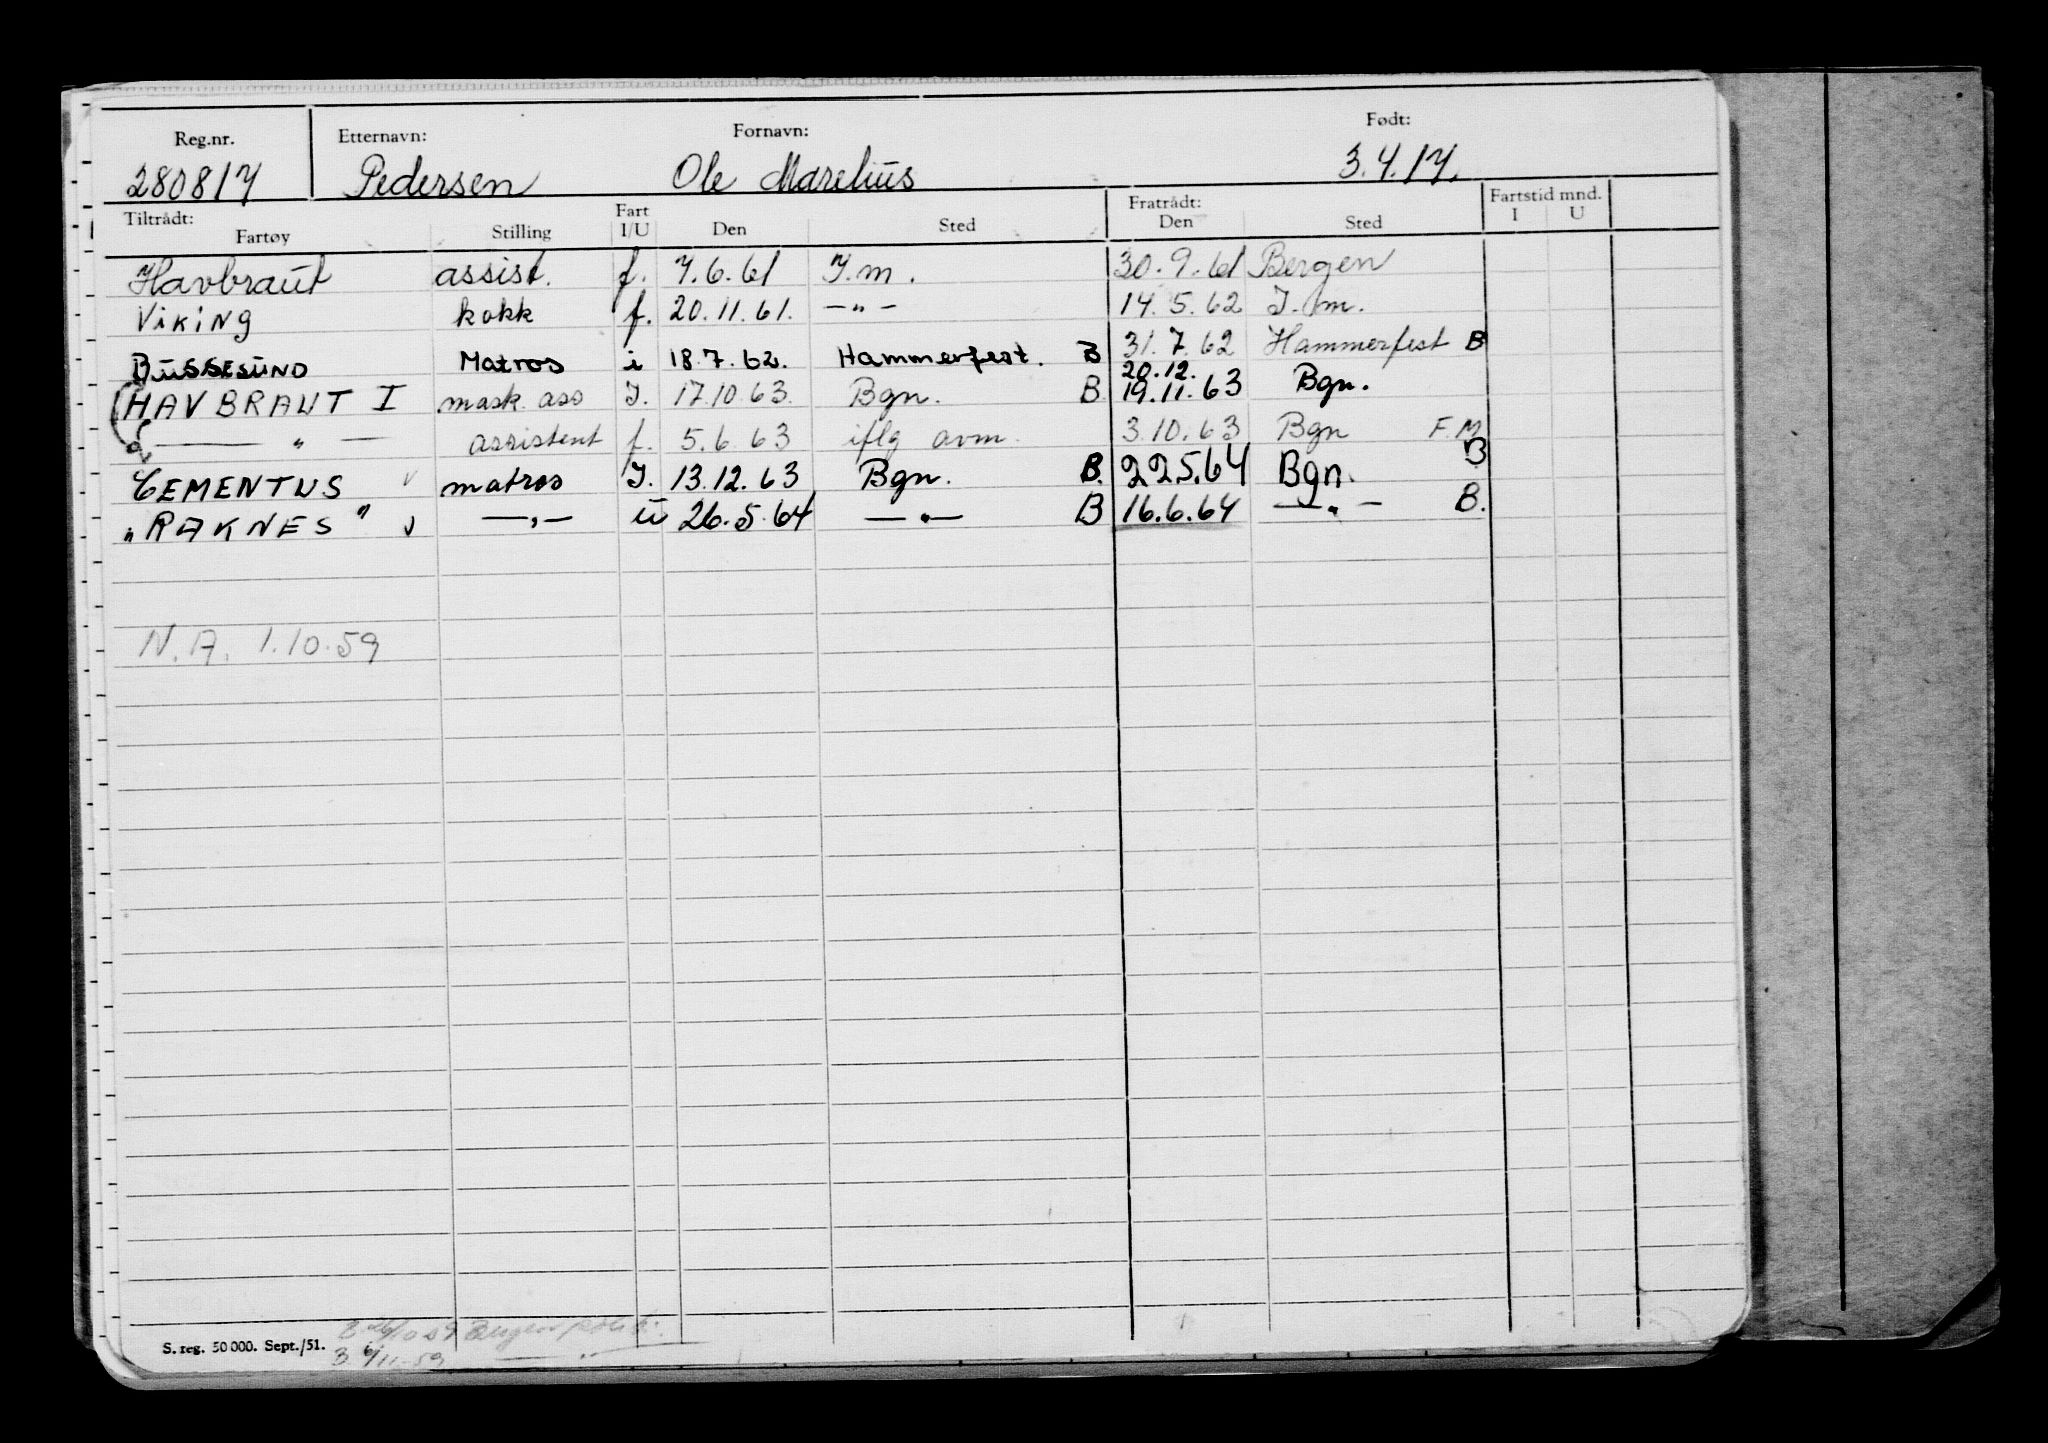 Reg.nr. Etternavn: Fornavn: Født:
280817 Pedersen Ole Marelius 3.4.17.
Tiltrådt: Fartøy Stilling Fart I/U Den Sted Fratrådt: Den Sted Fartstid mnd. I U
Havbraut assist. f. 7.6.61 I.m. 30.9.61 Bergen
Viking kokk f. 20.11.61. —„— 14.5.62 I.m.
BUSSESUND Matros i 18.7.62. Hammerfest. B 31.7.62 Hammerfest B
20.12.
HAVBRAUT I mask. ass I. 17.10.63. Bgn. B 19.11.63 Bgn.
—„— assistent f. 5.6.63 iflg avm. 3.10.63 Bgn F.M
CEMENTUS v matros I. 13.12.63 Bgn. B. 22.5.64 Bgn. B
"RAKNES" v —„— U 26.5.64 —„— B 16.6.64 —„— B.
N.A. 1.10.59
S. reg. 50 000. Sept./51.
3 6/11-59 —„—